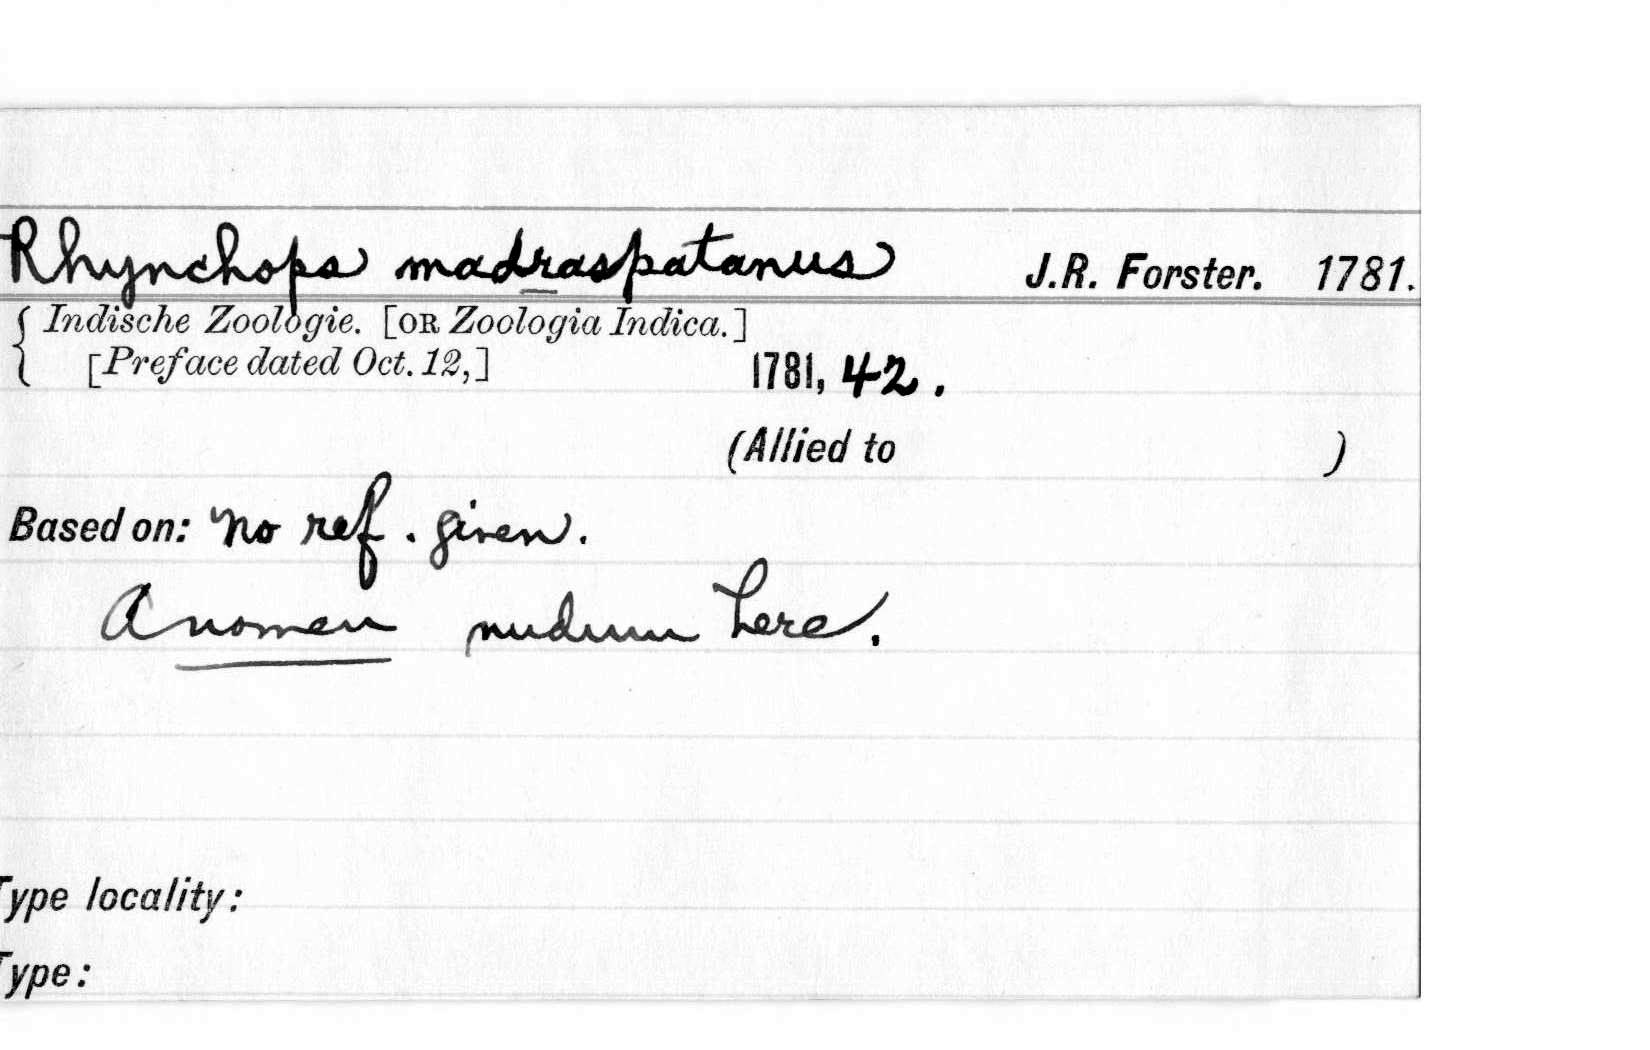 Rhynchops madraspatanus J.R. Forster. 1781.
{ Indische Zoologie. [OR Zoologia Indica.]
[Preface dated Oct. 12,] 1781, 42.
(Allied to )
Based on: no ref. given.
A nomen nudum here.
Type locality:
Type: